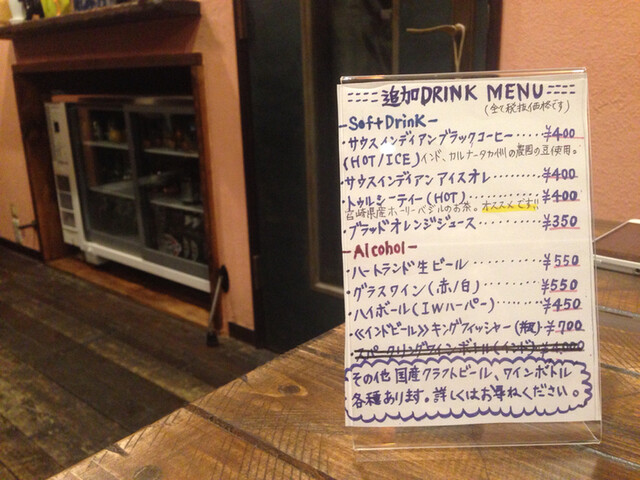 追加DRINK MENU
(全て税抜価格です)
-Soft Drink-
・サウスインディアンブラックコーヒー・・・・・¥400
(HOT/ICE)インド、カルナータカ州の農園の豆使用。
・サウスインディアンアイスオレ・・・・・・¥400
・トゥルシーティー(HOT)・・・・・・・・¥400
宮崎県産ホーリーバジルのお茶。オススメです!!
・ブラッドオレンジジュース・・・・・・¥350
-Alcohol-
・ハートランド生ビール・・・・・・・・¥550
・グラスワイン(赤/白)・・・・・・・・¥550
・ハイボール(IWハーパー)・・・・・¥450
・《インドビール》キングフィッシャー(瓶)・¥700
・スパークリングワインボトル(インド)・¥4,000
その他国産クラフトビール、ワインボトル
各種あります。詳しくはお尋ねください。